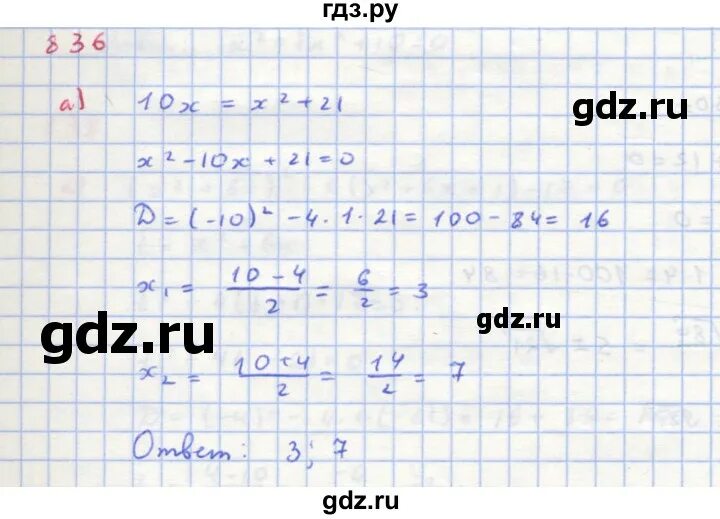 гдз.ру
836
а) 10x = x² + 21
gdz.ru
x² - 10x + 21 = 0
D = (-10)² - 4 · 1 · 21 = 100 - 84 = 16
x₁ = (10 - 4)/2 = 6/2 = 3
gdz.ru
gdz.ru
x₂ = (10 + 4)/2 = 14/2 = 7
Ответ: 3; 7
gdz.ru